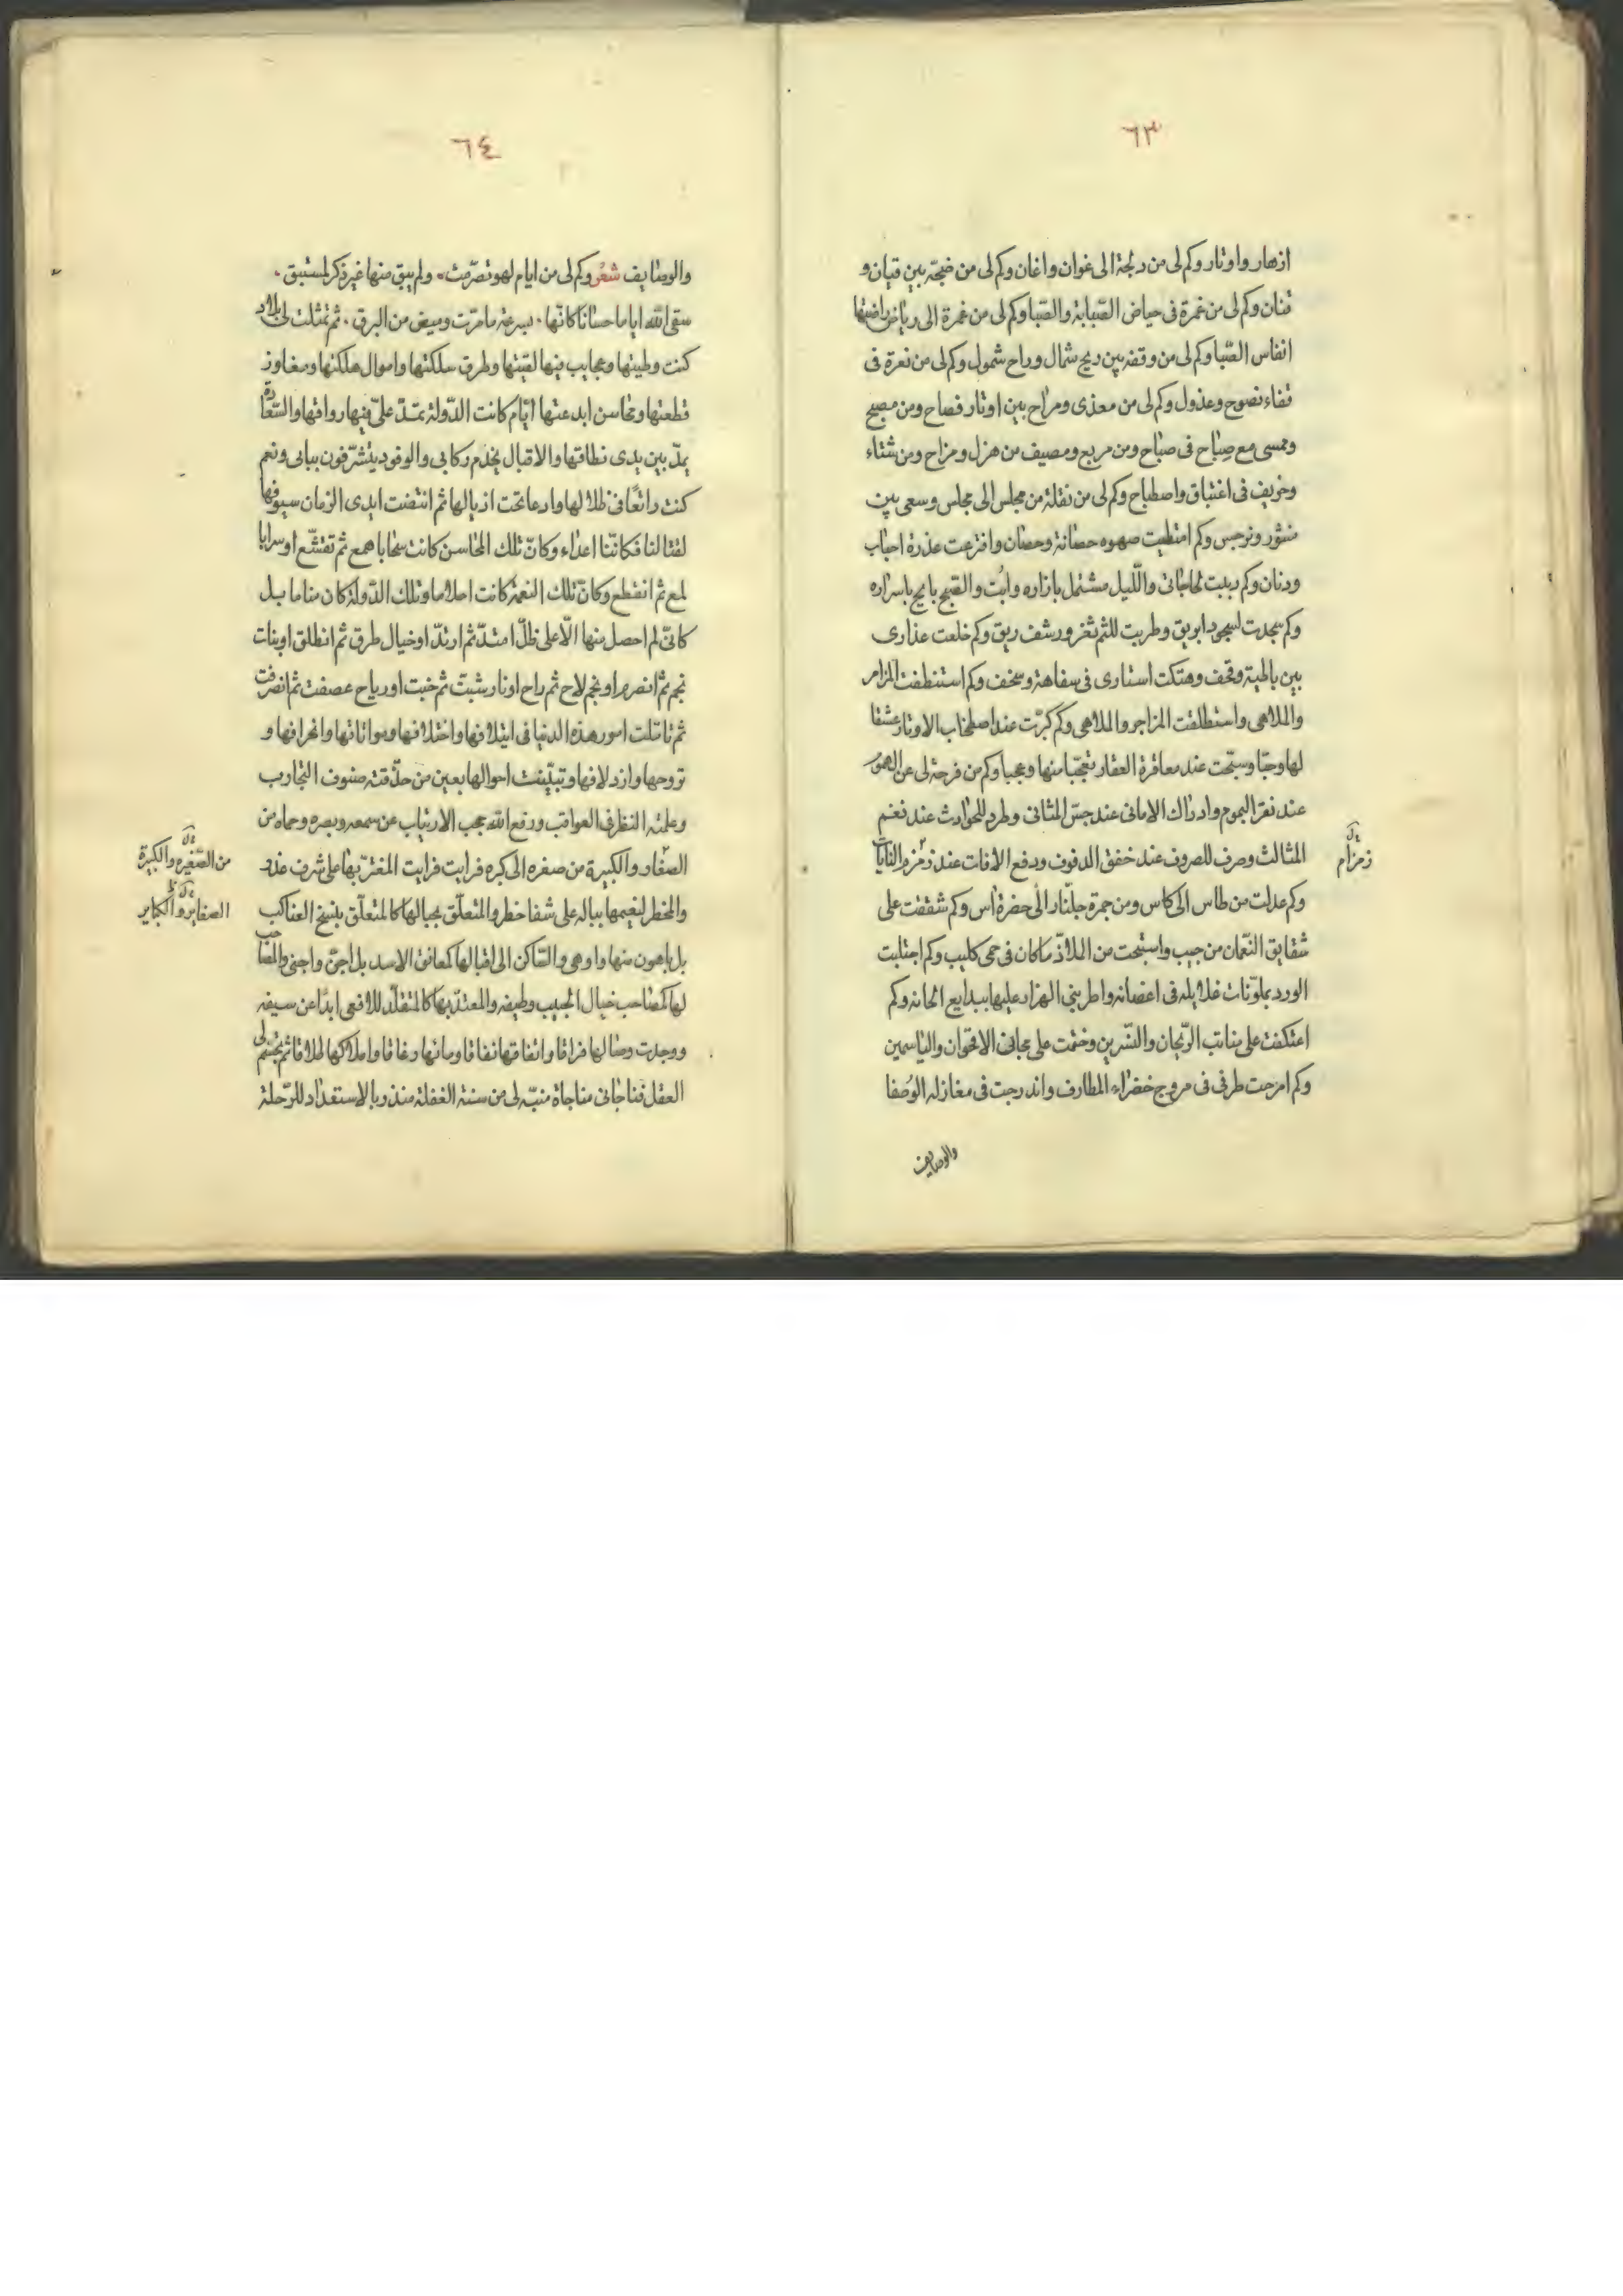 ٦٣
ازهار واوتار وكم لى من دلجة الى غوان واغان وكم لى من ضجة بين قيان و
قنان وكم لى من غمرة فى حياض الصّبابة والصّبا وكم لى من غمرة الى رياض راضتها
انفاس الصّبا وكم لى من وقفه بين ريح شمال وراح شمول وكم لى من نعرة فى
قفاء نصوح وعذول وكم لى من معذى ومراح بين اوتار فصاح ومن مصبح
وممسى مع صباح فى صباح ومن مربع ومصيف من هزل ومزاح ومن شتاء
وخريف فى اغتباق واصطباح وكم لى من نقلة من مجلس الى مجلس وسعى بين
منثور ونرجس وكم امتطيت صهوه حصانة وحصان وافترعت عذرة احباب
ودنان وكم دببت لحاجاتى والليل مشتمل بازاره وابت والصبح بايح باسراره
وكم سجدت لسجود ابريق وطربت للثم ثغر ورشف ريق وكم خلعت عذارى
بين باطية وقحف وهتكت استارى فى سفاهة وسخف وكم استنطقت المزامر
والملاهى واستطلقت المزاجر والملاهى وكم كبّرت عند اصطخاب الاوتار عشقا
لها وحبّا وسبّحت عند معاقرة العقار تعجّبا منها وعجبا وكم من فرحة لى عن الهموم
عند نقر البموم وادراك الامانى عند جسّ المثانى وطرد للحوادث عند نغم
المثالث وصرف للصروف عند خفق الدفوف ودفع الافات عند زمزم النايات
زمزام
وكم عدلت من طاس الى كاس ومن جمرة جلّنار الى خضرة اس وكم شققت على
شقايق النّعمان من جيب واستبحت من الملاذّ ما كان فى حمى كليب وكم اجتليت
الورد بملوّنات غلايله فى اغصانه واطربنى الهزار عليها ببدايع الحانه وكم
اعتكفت على منابت الرّيحان والنّسرين وختمت على مجانى الاقحوان والياسمين
وكم امرجت طرفى فى مروج خضراء المطارف واندرجت فى مغازله الوُصَفا
والوصايف
٦٤
والوصايف شعر وكم لى من ايام لهو تصرّمت. ولم يبق منها غير ذكر لمستبق.
سقى الله اياما حسانا كانّها. بسرعة ما مرّت وميض من البرق. ثم تمثلت لى بلاد
كنت وطيتها وعجايب فيها لقيتها وطرق سلكتها واموال ملكتها ومفاوز
قطعتها ومحاسن ابدعتها ايّام كانت الدّولة يمتدّ علىّ فيها رواقها والسّعادة
يمدّ بين يدى نطاقها والاقبال يخدم ركابى والوفود يتشرّفون ببابى ونعم
كنت راتعًا فى ظلالها وادعا تحت اذيالها ثم انتضت ايدى الزمان سيوفها
لقتالنا فكانّنا اعداء وكانّ تلك المحاسن كانت سحابا همع ثم تقشّع او سرابا
لمع ثم انقطع وكانّ تلك النعمة كانت احلاما وتلك الدّولة كان مناما بل
كانّى لم احصل منها الّا على ظلّ امتدّ ثم ارتدّ او خيال طرق ثم انطلق او بنات
نجم ثم انصرم او نجم لاح ثم راح او نار شبت ثم خبت او رياح عصفت ثم انصرفت
ثم تاملت امور هذه الدنيا فى ايتلافها واختلافها ومواتاتها وانحرافها و
تروحها وازدلافها وتبيّنت احوالها بعين من حذّقته صنوف التجارب
وعلمته النظر فى العواقب ورفع الله حجب الارتياب عن سمعه وبصره وحماه من
الصغاير والكبيرة من صغره الى كبره فرايت فرايت المغترّ بها على شرف غدر
من الصّغيره والكبيرة
والمخطر لنعيمها بباله على شفا خطر والمتعلّق بحبالها كالمتعلّق بنسج العناكب
الصغاير والكباير
بل باهون منها واوهى والسّاكن الى اقبالها كمعانق الاسد بل اجنّ واجنى والمصاحب
لها كمصاحب خيال الحبيب وطيفه والمعتدّ بها كالمتقلّد للافعى ابدًا عن سيفه
ووجدت وصالها فراقا واتفاقها نفاقا ومانها رغاقا واملاكها املاقا ثم تجسّم لى
العقل فناجانى مناجاة منبّه لى من سنة الغفلة منذر بالاستعداد للرّحلة